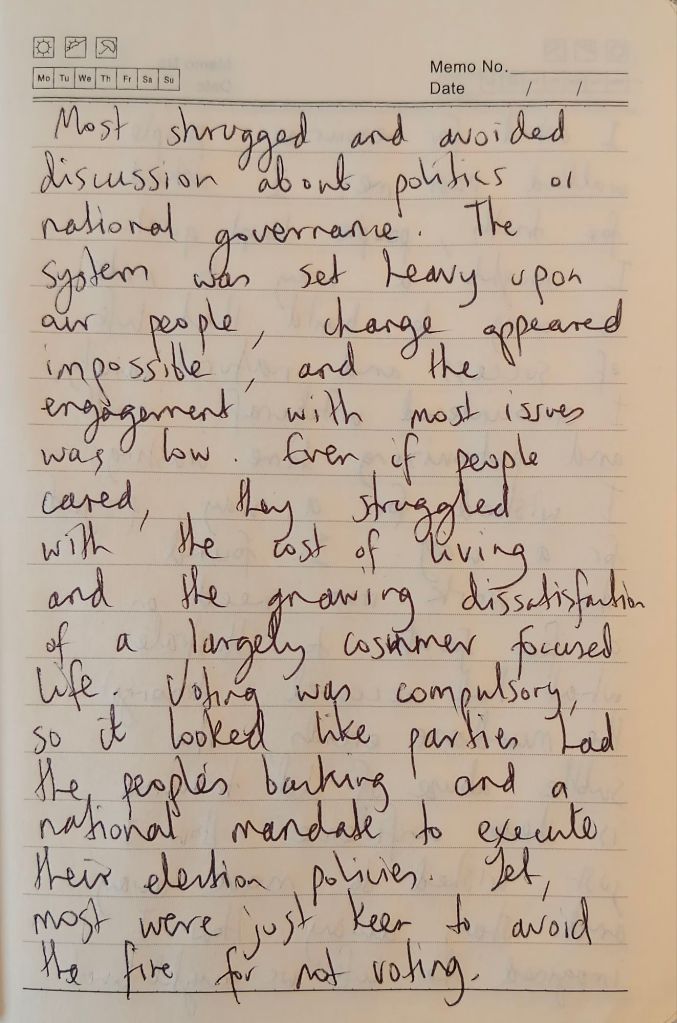 Mo Tu We Th Fr Sa Su
Memo No.
Date / /
Most shrugged and avoided
discussion about politics or
national governance. The
system was set heavy upon
our people, change appeared
impossible, and the
engagement with most issues
was low. Even if people
cared, they struggled
with the cost of living
and the gnawing dissatisfaction
of a largely cosnumer focused
life. Voting was compulsory,
so it looked like parties had
the people's backing and a
national mandate to execute
their election policies. Yet,
most were just keen to avoid
the fine for not voting.